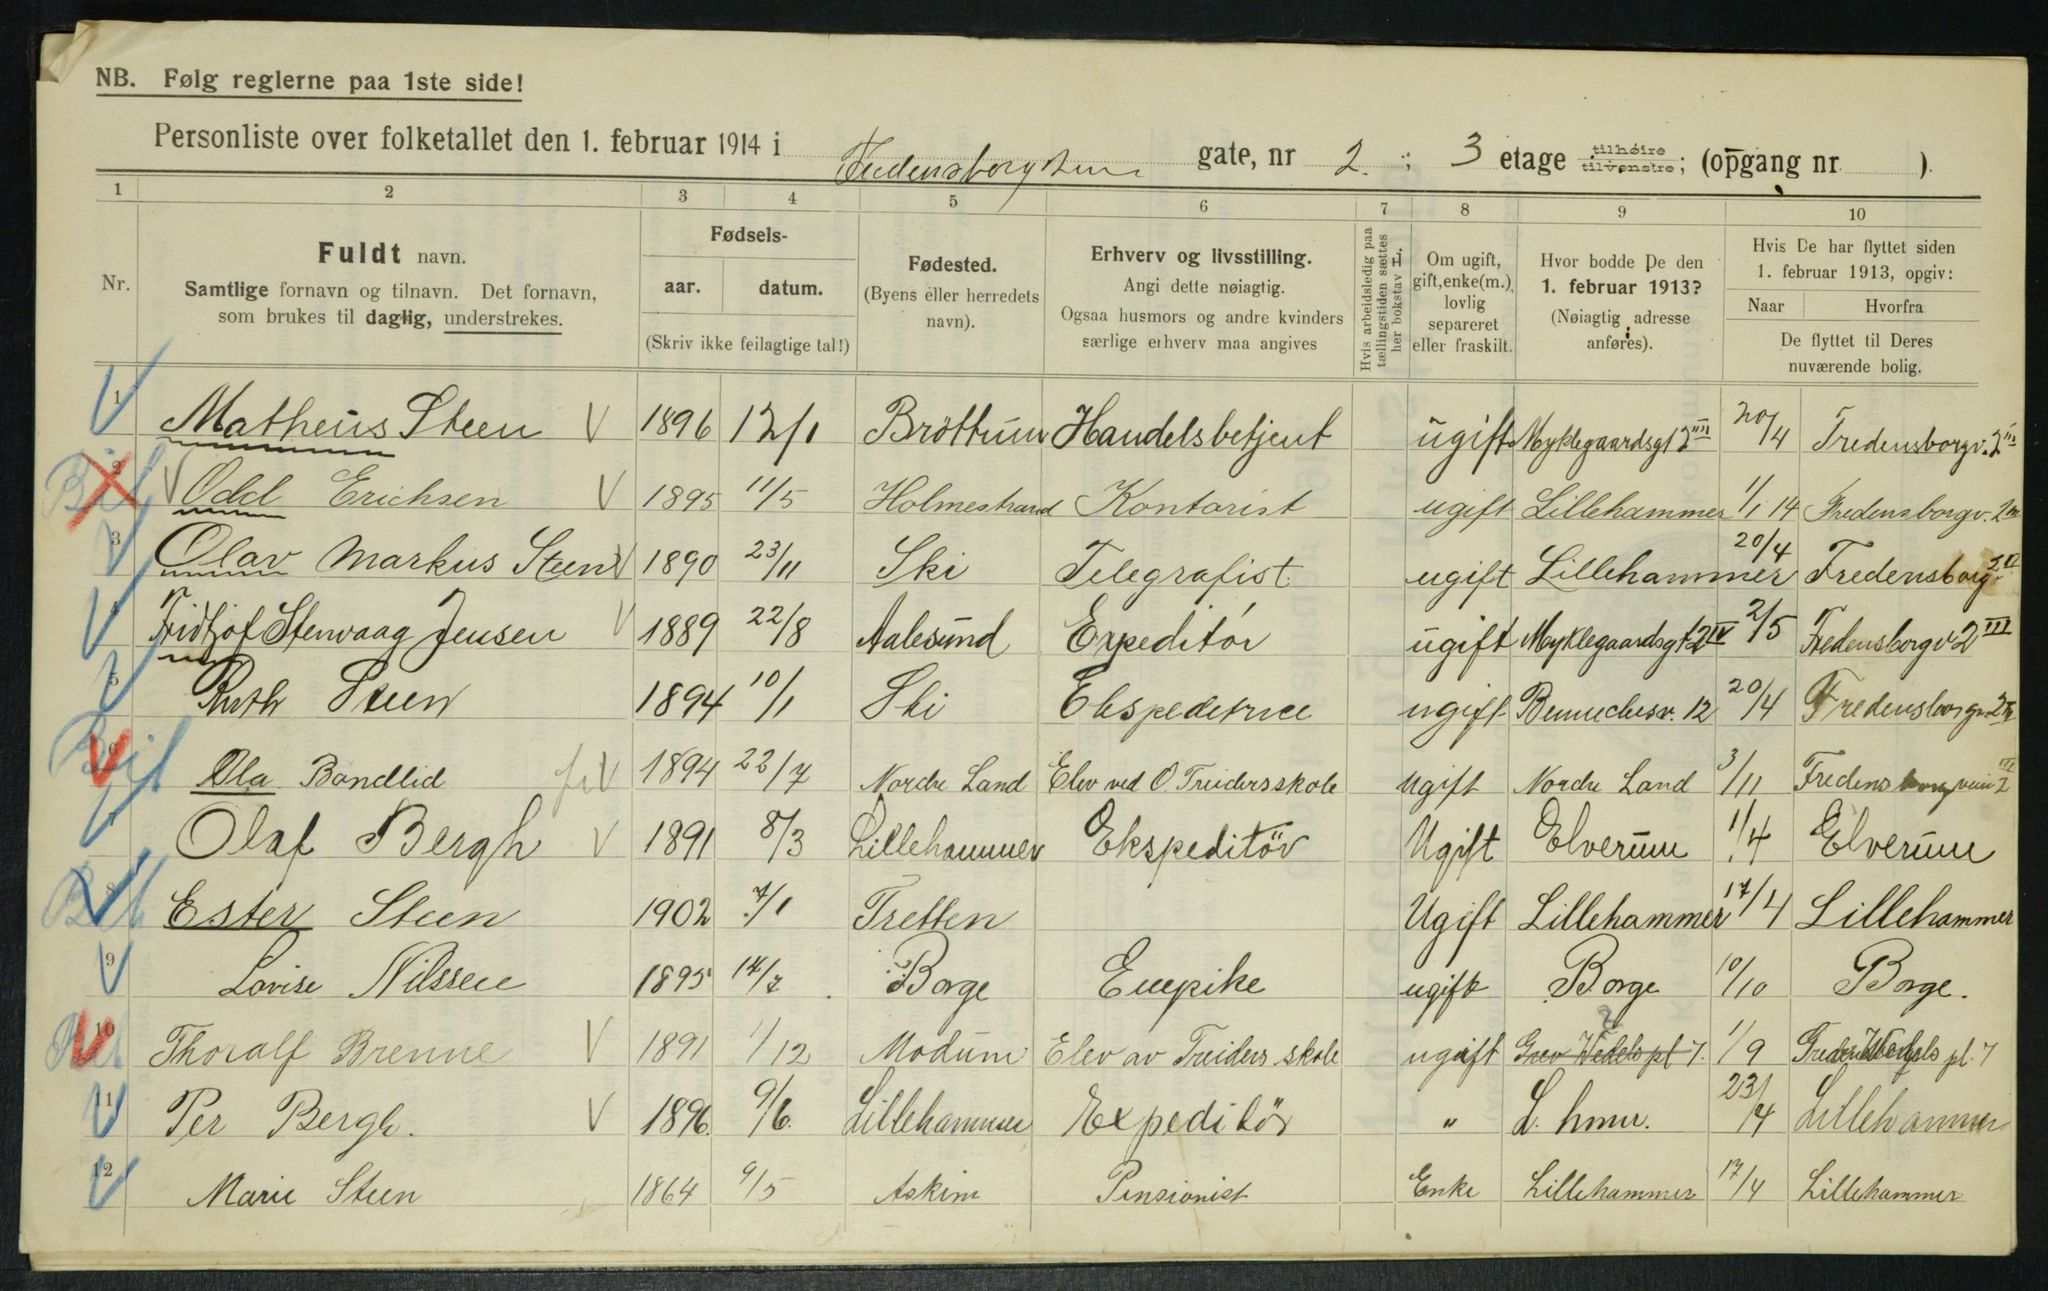 NB. Følg reglerne paa 1ste side!
Personliste over folketallet den 1. februar 1914 i gate, nr 2. ; 3 etage tilhøire tilvenstre; (opgang nr ).
1 2 3 4 5 6 7 8 9 10
Nr.
Fuldt navn.
Samtlige fornavn og tilnavn. Det fornavn,
som brukes til daglig, understrekes.
Fødsels-
aar. datum.
(Skriv ikke feilagtige tal!)
Fødested.
(Byens eller herredets
navn).
Erhverv og livsstilling.
Angi dette nøiagtig.
Ogsaa husmors og andre kvinders
særlige erhverv maa angives
Hvis arbeidsledig paa
tællingstiden sættes
her bokstav L.
Om ugift,
gift, enke(m.),
lovlig
separeret
eller fraskilt.
Hvor bodde De den
1. februar 1913?
(Nøiagtig adresse
anføres).
Hvis De har flyttet siden
1. februar 1913, opgiv:
Naar Hvorfra
De flyttet til Deres
nuværende bolig.
1 Matheus Steen V 1896 12/1 Bröttum Handelsbetjent ugift Myklegaardsgt 2 20/4 Fredensborgv. 2 III
2 Odd Erichsen V 1895 11/5 Holmestrand Kontorist ugift Lillehammer 1/1 14 Fredensborgv. 2
3 Olav Markus Steen V 1890 23/11 Ski Telegrafist ugift Lillehammer 20/4 Fredensborgv 2
4 Fridtjof Stenvaag Jensen V 1889 22/8 Aalesund Expeditör ugift Myklegaardsgt 2 IV 2/5 Fredensborgv 2 III
5 Ruth Steen 1894 10/1 Ski Ekspeditrice ugift Bennechesv. 12 20/4 Fredensborgv. 2
6 Ola Bandlid V 1894 22/7 Nordre Land Elev ved O Treiders skole Ugift Nordre Land 3/11 Fredensborgvein 2 III
7 Olaf Bergh V 1891 8/3 Lillehammer Ekspeditör Ugift Elverum 1/4 Elverum
8 Ester Steen 1902 7/1 Tretten Ugift Lillehammer 17/4 Lillehammer
9 Lovise Nilssen 1895 14/7 Borge Enepike ugift Borge 10/10 Borge.
10 Thoralf Brenne V 1891 1/12 Modum Elev av Treiders skole ugift Grev Wedels pl 7. 1/9 pl. 7
11 Per Bergh. V 1896. 9/6. Lillehammer Expeditör " L. hmr. 23/4 Lillehammer
12 Marie Steen 1864 9/5 Askim Pensionist Enke Lillehammer 17/4 Lillehammer